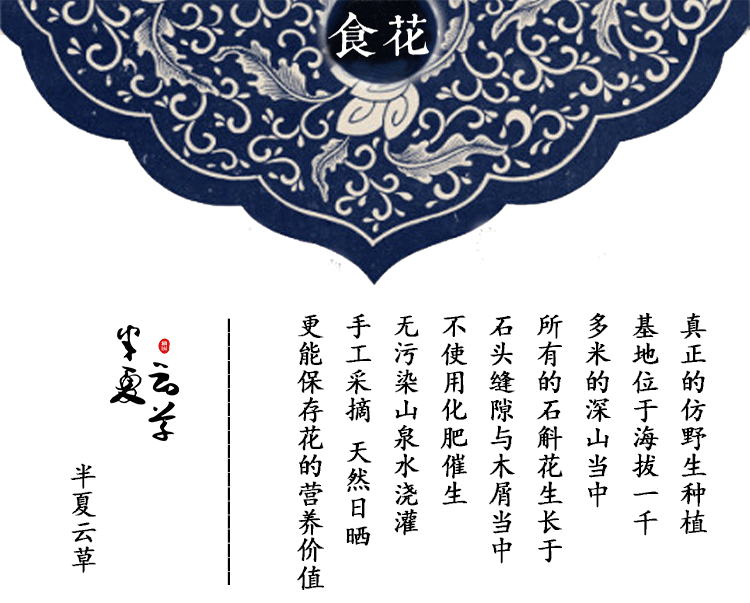 食花
真正的仿野生种植
基地位于海拔一千
多米的深山当中
所有的石斛花生长于
石头缝隙与木屑当中
不使用化肥催生
无污染山泉水浇灌
手工采摘 天然日晒
更能保存花的营养价值
半夏云草
半夏云草